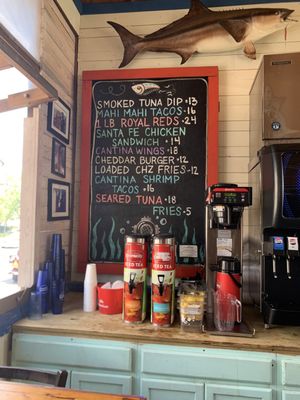 SMOKED TUNA DIP •13
MAHI MAHI TACOS •16
1 LB ROYAL REDS •24
SANTA FE CHICKEN
SANDWICH • 14
CANTINA WINGS • 18
CHEDDAR BURGER •12
LOADED CHZ FRIES -12
CANTINA SHRIMP
TACOS • 16
SEARED TUNA • 18
FRIES •5
ICED TEA
ICED TEA